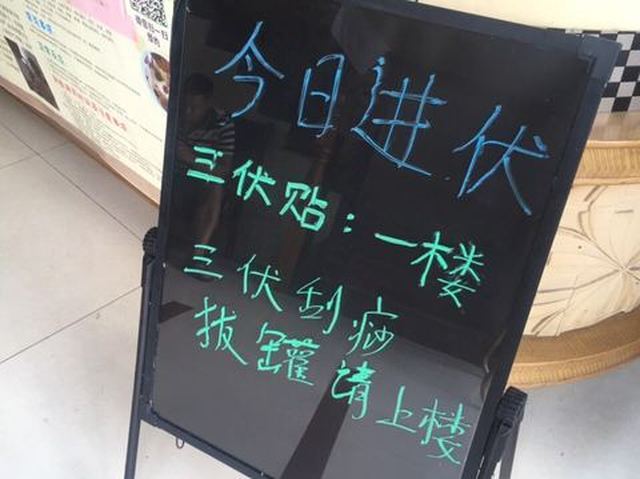 今日进伏
三伏贴：一楼
三伏刮痧
拔罐请上楼